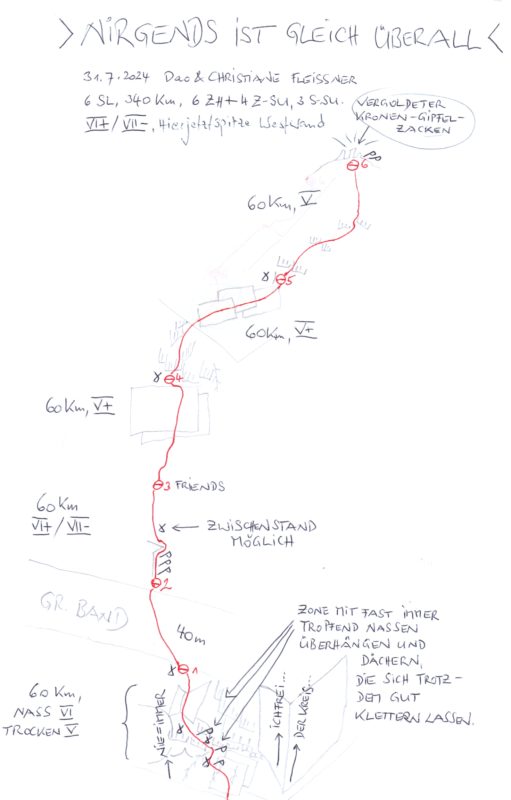 >NIRGENDS IST GLEICH ÜBERALL<
31.7.2024 DAC & CHRISTIANE FLEISSNER
6 SL, 340 Km, 6 ZH + 4 Z-SU, 3 S-SU.
VI+/VII-, Hierjetztspitze Westwand
VERGOLDETER
KRONEN-GIPFEL-
ZACKEN
6
60 Km, V
5
60 Km, V+
4
60 Km, V+
3 FRIENDS
60 Km
VI+/VII-
ZWISCHENSTAND
MÖGLICH
2
GR. BAND
40m
ZONE MIT FAST IMMER
TROPFEND NASSEN
ÜBERHÄNGEN UND
DÄCHERN,
DIE SICH TROTZ-
DEM GUT
KLETTERN LASSEN.
1
60 Km,
NASS VI
TROCKEN V
NIE=IMMER
ICH FREI...
DER KREIS...